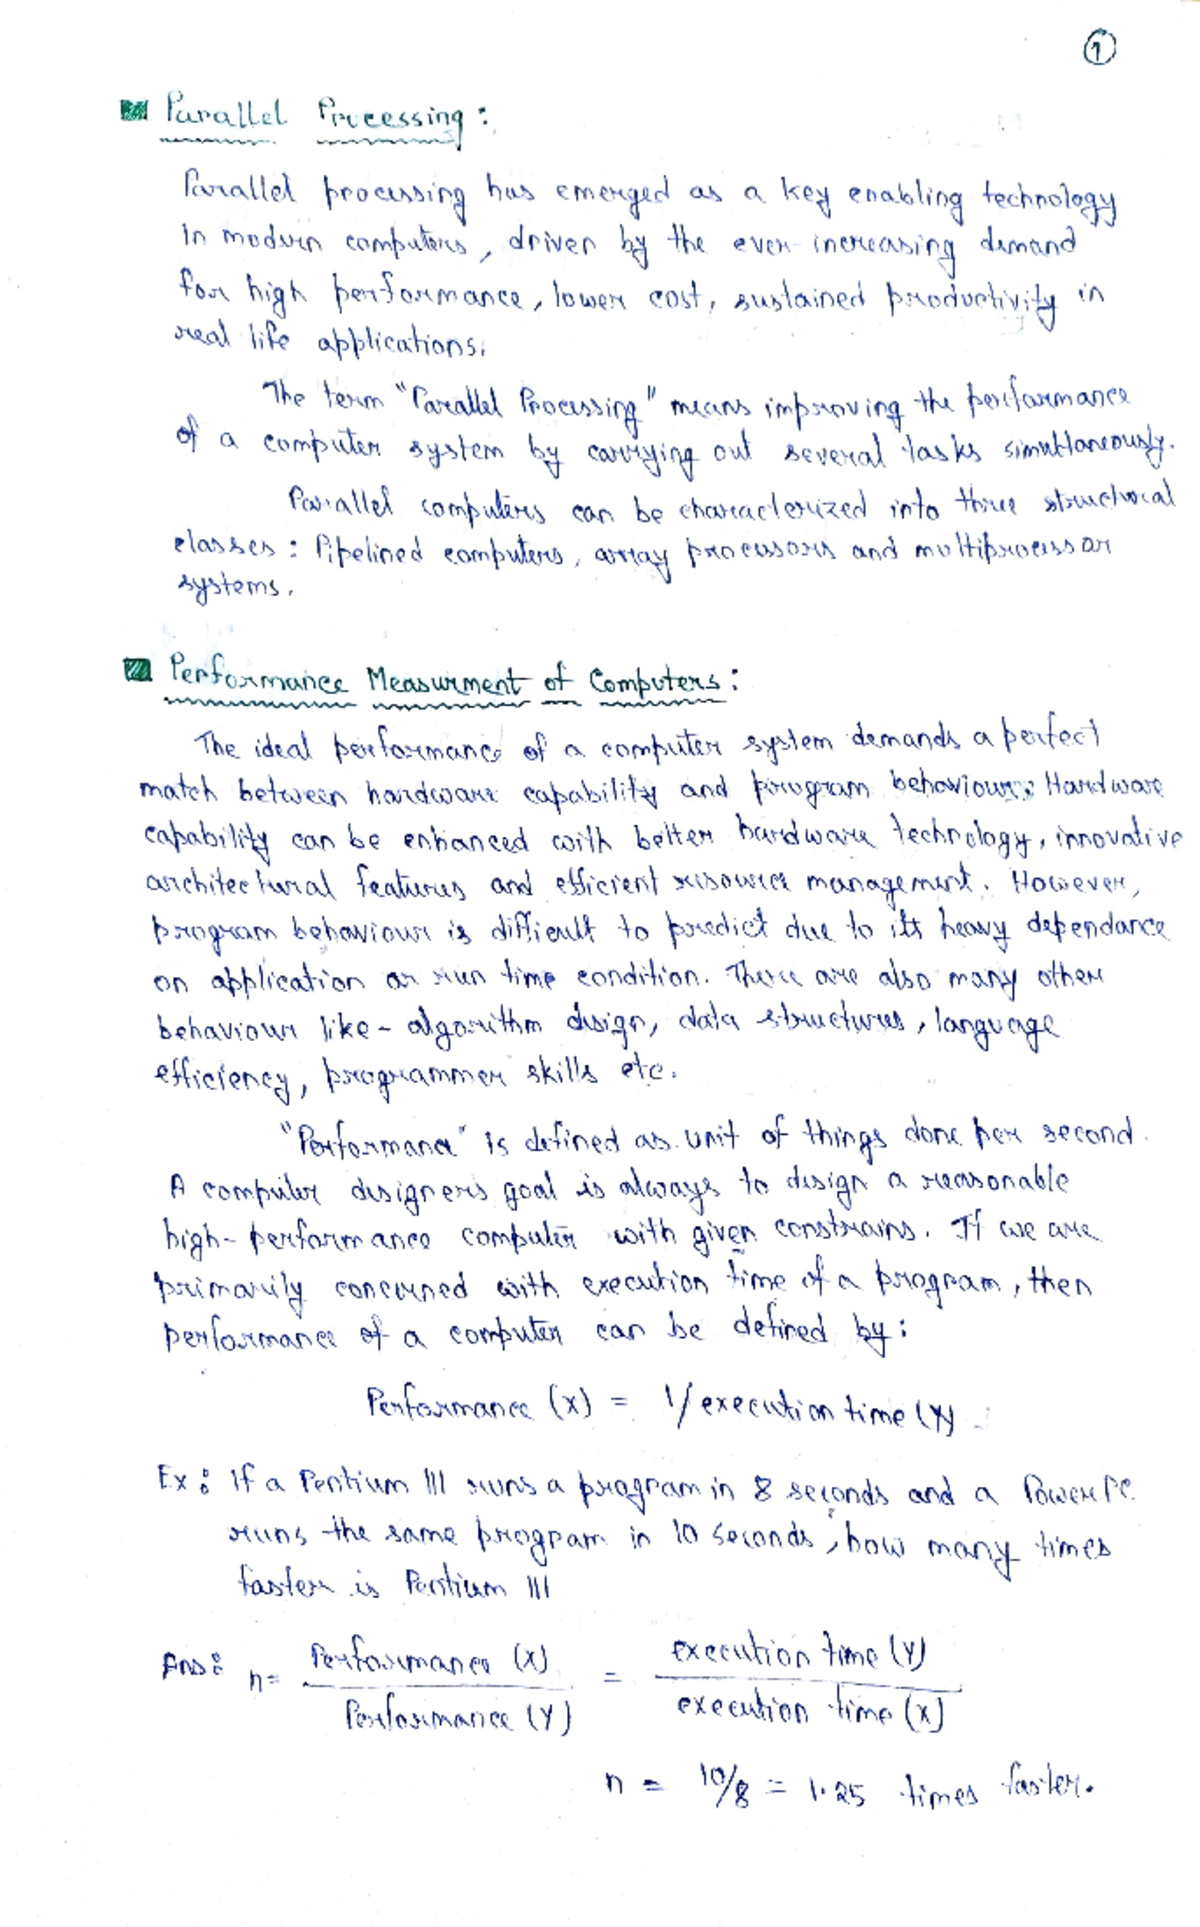 1
Parallel Processing :
Parallel processing has emerged as a key enabling technology
in modern computers, driven by the ever-increasing demand
for high performance, lower cost, sustained productivity in
real life applications.
The term "Parallel Processing" means improving the performance
of a computer system by carrying out several tasks simultaneously.
Parallel computers can be characterized into three structural
classes : Pipelined computers, array processors and multiprocessor
systems.
Performance Measurment of Computers :
The ideal performance of a computer system demands a perfect
match between hardware capability and program behaviour. Hardware
capability can be enhanced with better hardware technology, innovative
architectural features and efficient resource management. However,
program behaviour is difficult to predict due to its heavy dependance
on application or run time condition. There are also many other
behaviour like - algorithm design, data structures, language
efficiency, programmer skills etc.
"Performance" is defined as unit of things done per second.
A computer designers goal is always to design a reasonable
high-performance computer with given constrains. If we are
primarily concerned with execution time of a program, then
performance of a computer can be defined by :
Performance (x) = 1/execution time (Y)
Ex : If a Pentium III runs a program in 8 seconds and a PowerPC
runs the same program in 10 seconds, how many times
faster is Pentium III
Ans : n = Performance (X) / Performance (Y) = execution time (Y) / execution time (x)
n = 10/8 = 1.25 times faster.